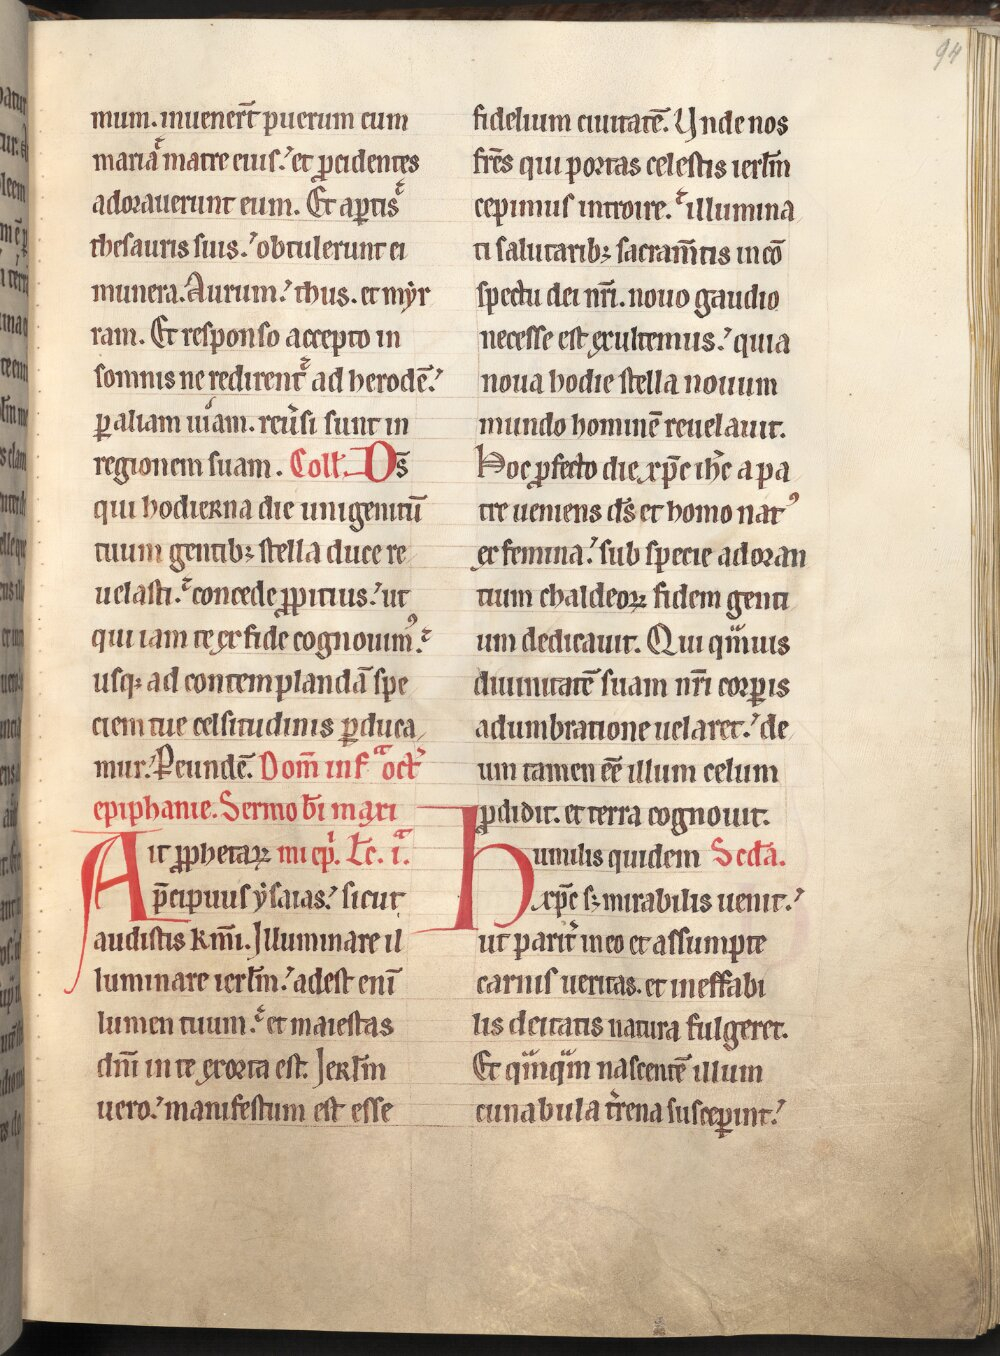 94
mum. inuenert̄ puerum cum
mariā matre eius.ʼ et ꝓcidentes
adorauerunt eum. Et aꝑtis
thesauris suis.ʼ obtulerunt ei
munera. Aurum.ʼ thus. et myr
ram. Et responso accepto in
somnis ne redirent ad herodē.ʼ
ꝑ aliam uiam. reůsi sunt in
regionem suam. Coll̄. Ds̄
qui hodierna die unigenitū
tuum gentibꝫ stella duce re
uelasti. concede ꝓpitius.ʼ ut
qui iam te ex fide cognouimꝰ.
usqꝫ ad contemplandā spe
ciem tue celsitudinis ꝑduca
mur.ʼ Ꝑ eundē. Dom̄ infª oct̄
epiphanie. Sermo bī maxi
Ait ꝓphetaꝝ mi ep̄i. Lc̄. iª.
p̄cipuus ysaias.ʼ sicut
audistis km̄i. Illuminare il
luminare ierl̄m.ʼ adest enī
lumen tuum. et maiestas
dn̄i in te exorta est. Ierl̄m
uero.ʼ manifestum est esse
fidelium ciuitatē. Unde nos
fr̄es qui portas celestis ierl̄m
cepimus introire. illumina
ti salutaribꝫ sacram̄tis in cō
spectu dei nr̄i. nouo gaudio
necesse est exultemus.ʼ quia
noua hodie stella nouum
mundo hominē reuelauit.
Hoc ꝓfecto die xp̄c ih̄c a pa
tre ueniens ds̄ et homo natꝰ
ex femina.ʼ sub specie adoran
tium chaldeoꝝ fidem genti
um dedicauit. Qui qᵃmuis
diuinitatē suam nr̄i corꝑis
adumbratione uelaret.ʼ de
um tamen eē illum celum
ꝓdidit. et terra cognouit.
Humilis quidem Scd̄a.
xp̄c sꝫ mirabilis uenit.ʼ
ut parit̄ in eo et assumpte
carnis ueritas. et ineffabi
lis deitatis natura fulgeret.
Et qᵃmqᵃm nascentē illum
cunabula t̄rena susceꝑint.ʼ